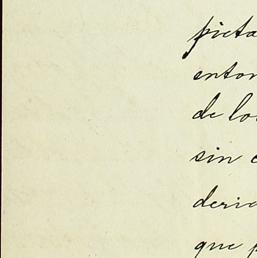 picta
enton
de lo
sin c
deric
que p